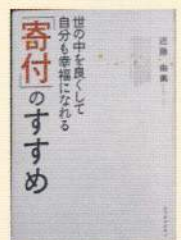 世の中を良くして
自分も幸福になれる
「寄付」のすすめ